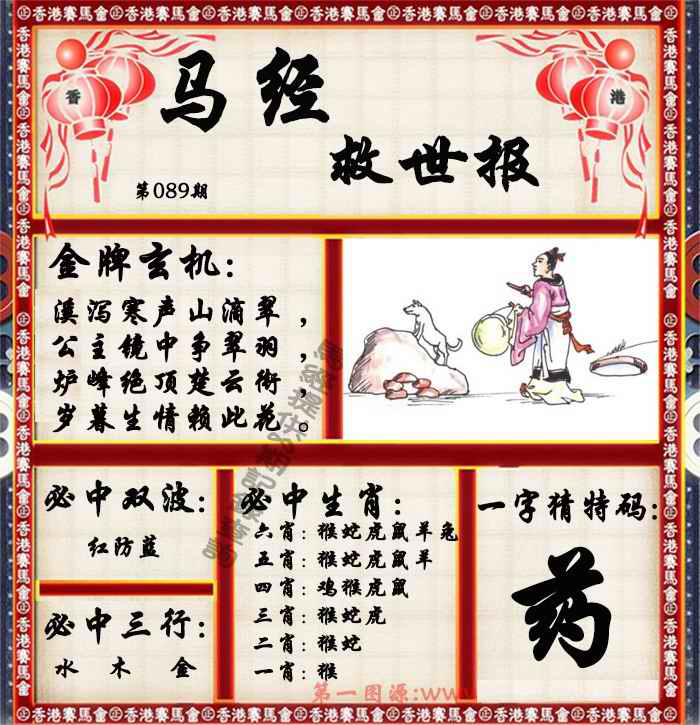 香港賽馬會
香 港
马经
救世报
第089期
金牌玄机：
溪泻寒声山滴翠，
公主镜中争翠羽，
炉峰绝顶楚云衔，
岁暮生情赖此花。
必中双波：
红防蓝
必中三行：
水 木 金
必中生肖：
六肖：猴蛇虎鼠羊兔
五肖：猴蛇虎鼠羊
四肖：鸡猴虎鼠
三肖：猴蛇虎
二肖：猴蛇
一肖：猴
一字猜特码：
药
第一图源:www